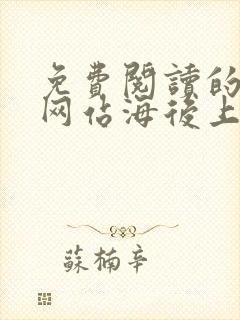 免費閱讀的
网佔海後上
蘇楠辛